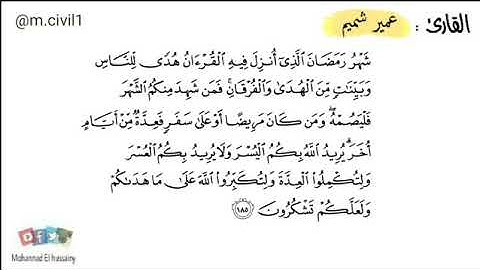 @m.civil1
القارئ : عمير شميم
شَهْرُ رَمَضَانَ ٱلَّذِىٓ أُنزِلَ فِيهِ ٱلْقُرْءَانُ هُدًى لِّلنَّاسِ
وَبَيِّنَٰتٍ مِّنَ ٱلْهُدَىٰ وَٱلْفُرْقَانِ ۚ فَمَن شَهِدَ مِنكُمُ ٱلشَّهْرَ
فَلْيَصُمْهُ ۖ وَمَن كَانَ مَرِيضًا أَوْ عَلَىٰ سَفَرٍ فَعِدَّةٌ مِّنْ أَيَّامٍ
أُخَرَ ۗ يُرِيدُ ٱللَّهُ بِكُمُ ٱلْيُسْرَ وَلَا يُرِيدُ بِكُمُ ٱلْعُسْرَ
وَلِتُكْمِلُوا۟ ٱلْعِدَّةَ وَلِتُكَبِّرُوا۟ ٱللَّهَ عَلَىٰ مَا هَدَىٰكُمْ
وَلَعَلَّكُمْ تَشْكُرُونَ ١٨٥
Mohannad El hussainy